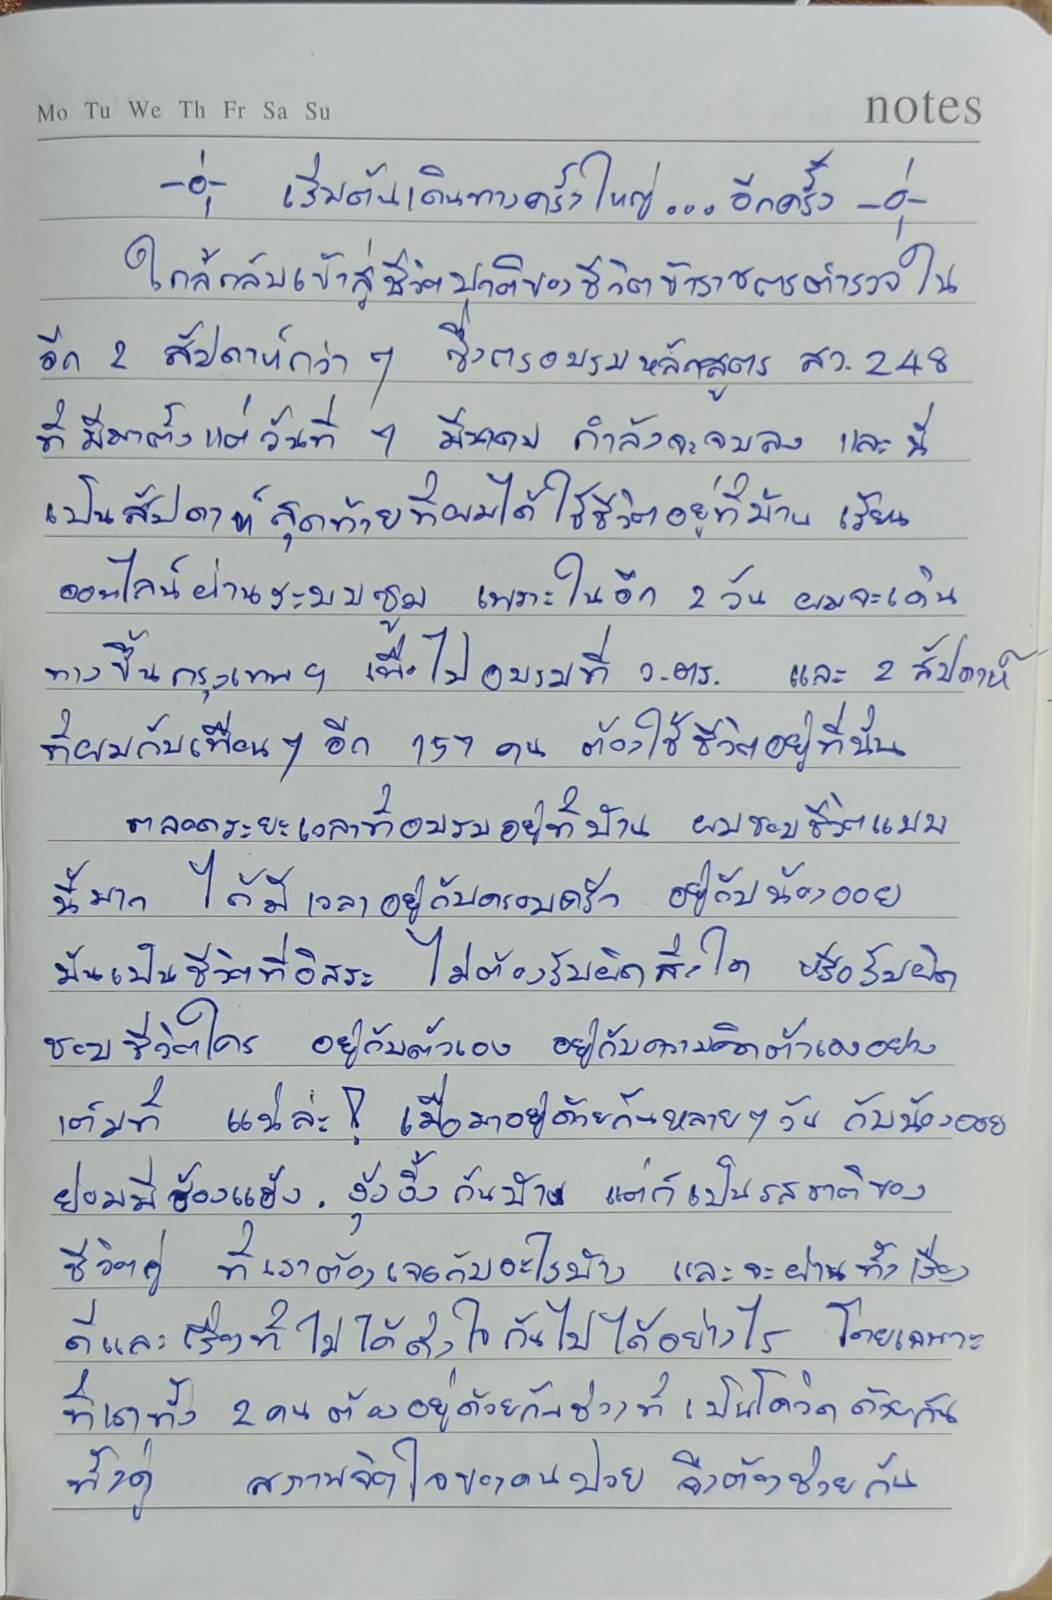 Mo Tu We Th Fr Sa Su
notes
เริ่มต้นเดินทางครั้งใหญ่...อีกครั้ง
ใกล้กลับเข้าสู่ชีวิตปกติของชีวิตข้าราชการตำรวจใน
อีก 2 สัปดาห์กว่า ๆ ซึ่งการอบรมหลักสูตร สว. 248
ที่มีมาตั้งแต่วันที่ ๆ มีนาคม กำลังจะจบลง และนี่
เป็นสัปดาห์สุดท้ายที่ผมได้ใช้ชีวิตอยู่ที่บ้าน เรียน
ออนไลน์ผ่านระบบซูม เพราะในอีก 2 วัน ผมจะเดิน
ทางขึ้นกรุงเทพฯ เพื่อไปอบรมที่ ว.ตร. และ 2 สัปดาห์
ที่ผมกับเพื่อนๆ อีก 151 คน ต้องใช้ชีวิตอยู่ที่นั่น
ตลอดระยะเวลาที่อบรมอยู่ที่บ้าน ผมชอบชีวิตแบบ
นี้มาก ได้มีเวลาอยู่กับครอบครัว อยู่กับน้องออย
มันเป็นชีวิตที่อิสระ ไม่ต้องรับผิดสิ่งใด หรือรับผิด
ชอบชีวิตใคร อยู่กับตัวเอง อยู่กับความคิดตัวเองอย่าง
เต็มที่ แน่ล่ะ! เมื่อมาอยู่ด้วยกันหลายๆ วัน กับน้องออย
ย่อมมีข้องแข้ง. งุ้งงิ้งกันบ้าง แต่ก็เป็นรสชาติของ
ชีวิตคู่ ที่เราต้องเจอกับอะไรบ้าง และจะผ่านทั้งเรื่อง
ดีและเรื่องที่ไม่ได้ดั่งใจกันไปได้อย่างไร โดยเฉพาะ
ที่เราทั้ง 2 คน ต้องอยู่ด้วยกันช่วงที่เป็นโควิดด้วยกัน
ทั้งคู่ สภาพจิตใจของคนป่วย จึงต้องช่วยกัน